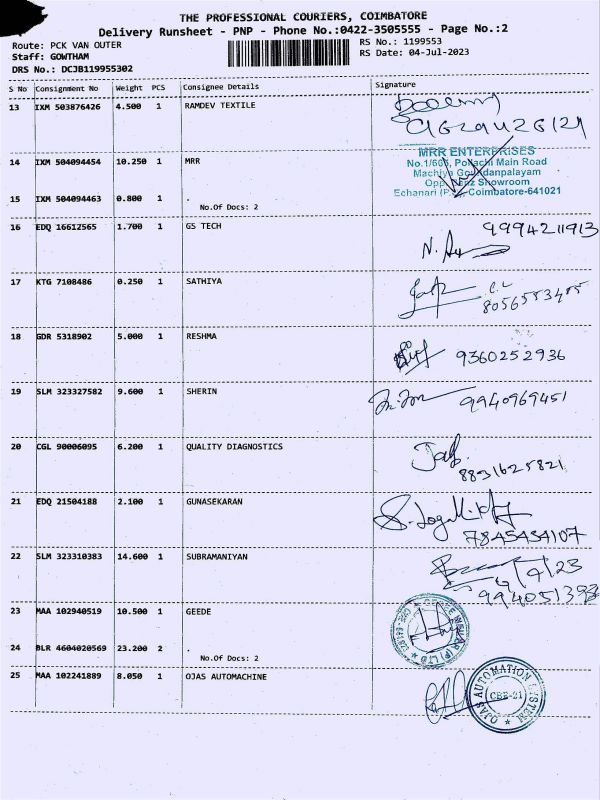 THE PROFESSIONAL COURIERS, COIMBATORE
Delivery Runsheet - PNP - Phone No.:0422-3505555 - Page No.:2
Route: PCK VAN OUTER
Staff: GOWTHAM
DRS No.: DCJB119955302
RS No.: 1199553
RS Date: 04-Jul-2023
S No Consignment No Weight PCS Consignee Details Signature
13 IXM 503876426 4.500 1 RAMDEV TEXTILE
14 IXM 504094454 10.250 1 MRR
MRR ENTERPRISES
No.1/605, Pollachi Main Road
Machiya Goundanpalayam
Opp. Benz Showroom
Echanari (P.O) - Coimbatore-641021
15 IXM 504094463 0.800 1 .
No.Of Docs: 2
16 EDQ 16612565 1.700 1 GS TECH 9994211913
17 KTG 7108486 0.250 1 SATHIYA
8056553485
18 GDR 5318902 5.000 1 RESHMA 9360252936
19 SLM 323327582 9.600 1 SHERIN 9940969451
20 CGL 90006095 6.200 1 QUALITY DIAGNOSTICS
8831625821
21 EDQ 21504188 2.100 1 GUNASEKARAN
7845434107
22 SLM 323310383 14.600 1 SUBRAMANIYAN
4/7/23
23 MAA 102940519 10.500 1 GEEDE
24 BLR 4604020569 23.200 2 .
No.Of Docs: 2
25 MAA 102241889 8.050 1 OJAS AUTOMACHINE
OJAS AUTOMATION SYSTEM
CBE-21